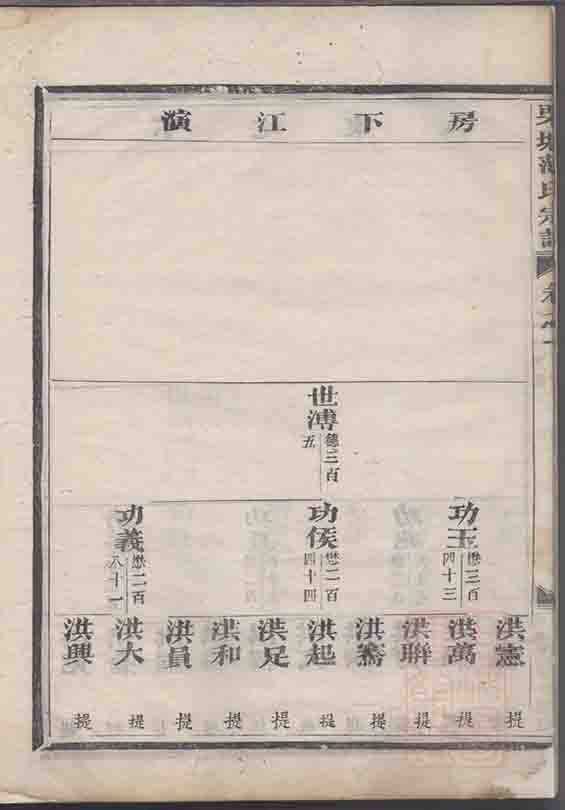 房下江演
世溥
德三百
五
功玉
懋三百
四十三
功侯
懋二百
四十四
功義
懋二百
八十一
洪憲
提
洪萬
提
洪聯
提
洪騫
提
洪起
提
洪足
提
洪和
提
洪員
提
洪大
提
洪興
提
氏宗譜